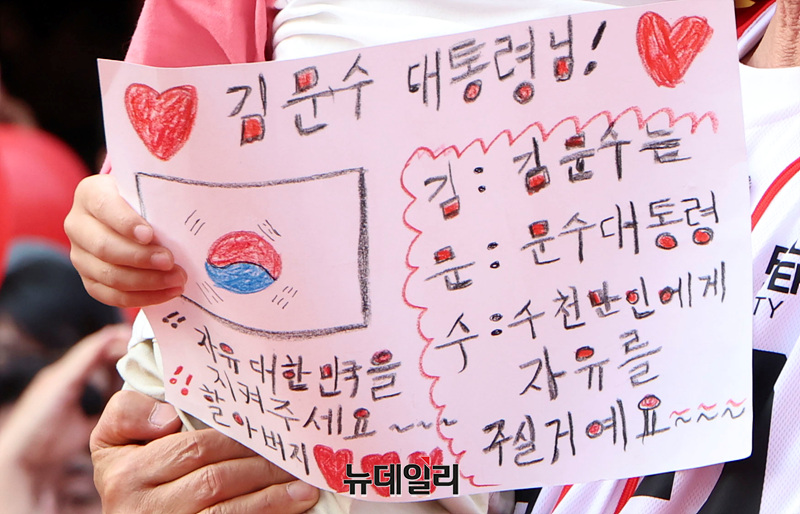 김문수 대통령님!
김 : 김문수는
문 : 문수대통령
수 : 수천만인에게
자유를
주실거예요~~~
!! 자유대한민국을
!! 지켜주세요~~~
할아버지
뉴데일리
TY